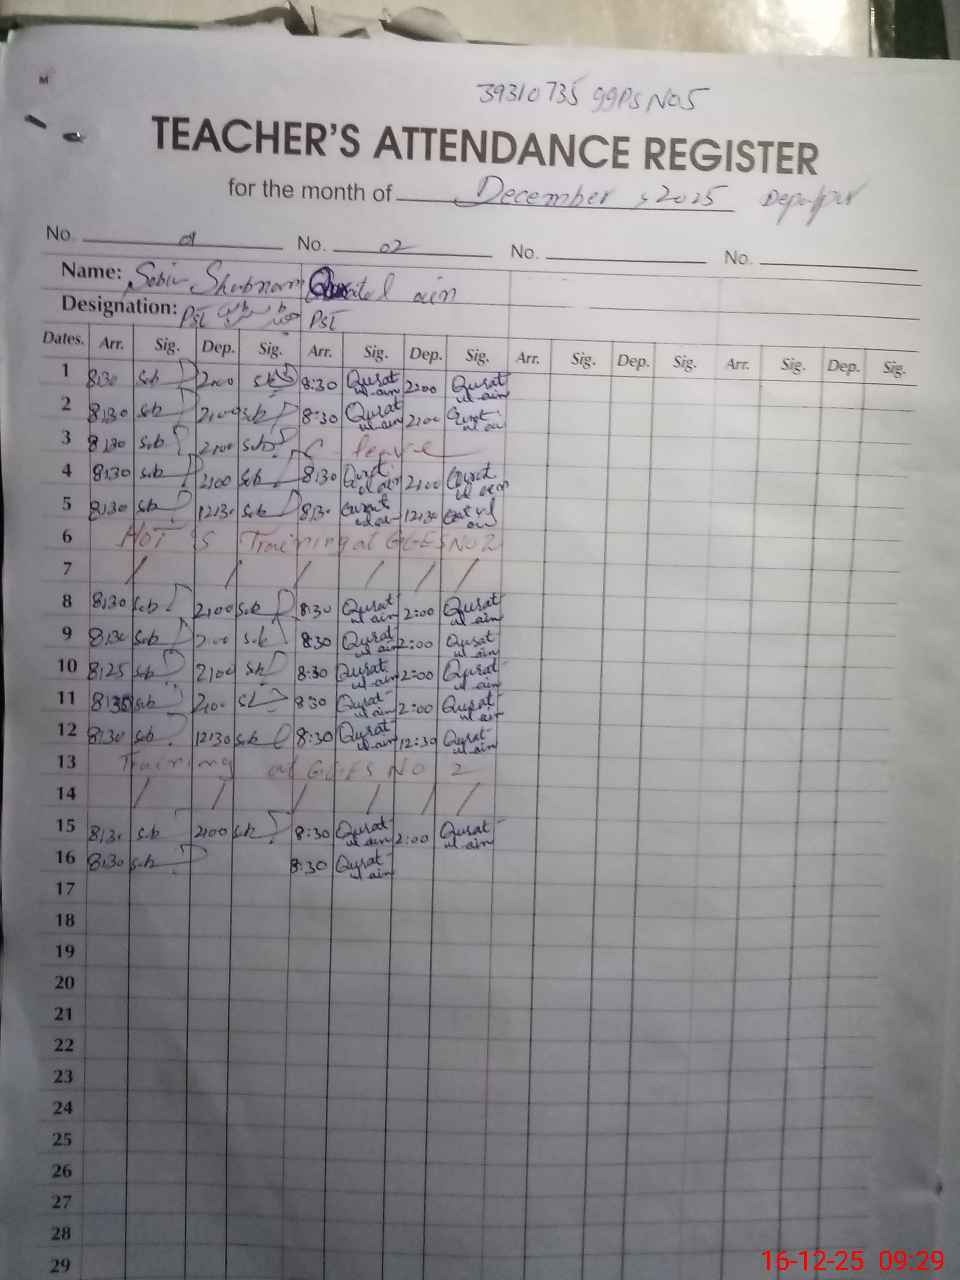 M
39310735 GGPS NO5
TEACHER'S ATTENDANCE REGISTER
for the month of December, 2025 Depalpur
No. 01 No. 02 No. No.
Name: Sobia Shabnam Qurat ul ain
Designation: PST PST
Dates. Arr. Sig. Dep. Sig. Arr. Sig. Dep. Sig. Arr. Sig. Dep. Sig. Arr. Sig. Dep. Sig.
1 8:30 Sob 2:00 Sob 8:30 Qurat ul-ain 2:00 Qurat ul-ain
2 8:30 Sob 2:00 Sob 8:30 Qurat ul-ain 2:00 Qurat ul-ain
3 8:30 Sob 2:00 Sob C leave
4 8:30 Sob 2:00 Sob 8:30 Qurat ul ain 2:00 Qurat ul ain
5 8:30 Sob 12:30 Sob 8:30 Qurat ul-ain 12:30 Qurat ul ain
6 HOTS Training at GGES NO 2
7 / / / / / /
8 8:30 Sob 2:00 Sob 8:30 Qurat ul ain 2:00 Qurat ul ain
9 8:30 Sob 2:00 Sob 8:30 Qurat ul ain 2:00 Qurat ul-ain
10 8:25 Sob 2:00 Sob 8:30 Qurat ul ain 2:00 Qurat ul-ain
11 8:30 Sob 2:00 Sob 8:30 Qurat ul ain 2:00 Qurat ul ain
12 8:30 Sob 12:30 Sob 8:30 Qurat ul-ain 12:30 Qurat ul-ain
13 Training at GGES NO 2
14 / / / / / /
15 8:30 Sob 2:00 Sob 8:30 Qurat ul ain 2:00 Qurat ul-ain
16 8:30 Sob 8:30 Qurat ul-ain
17
18
19
20
21
22
23
24
25
26
27
28
29
16-12-25 09:29